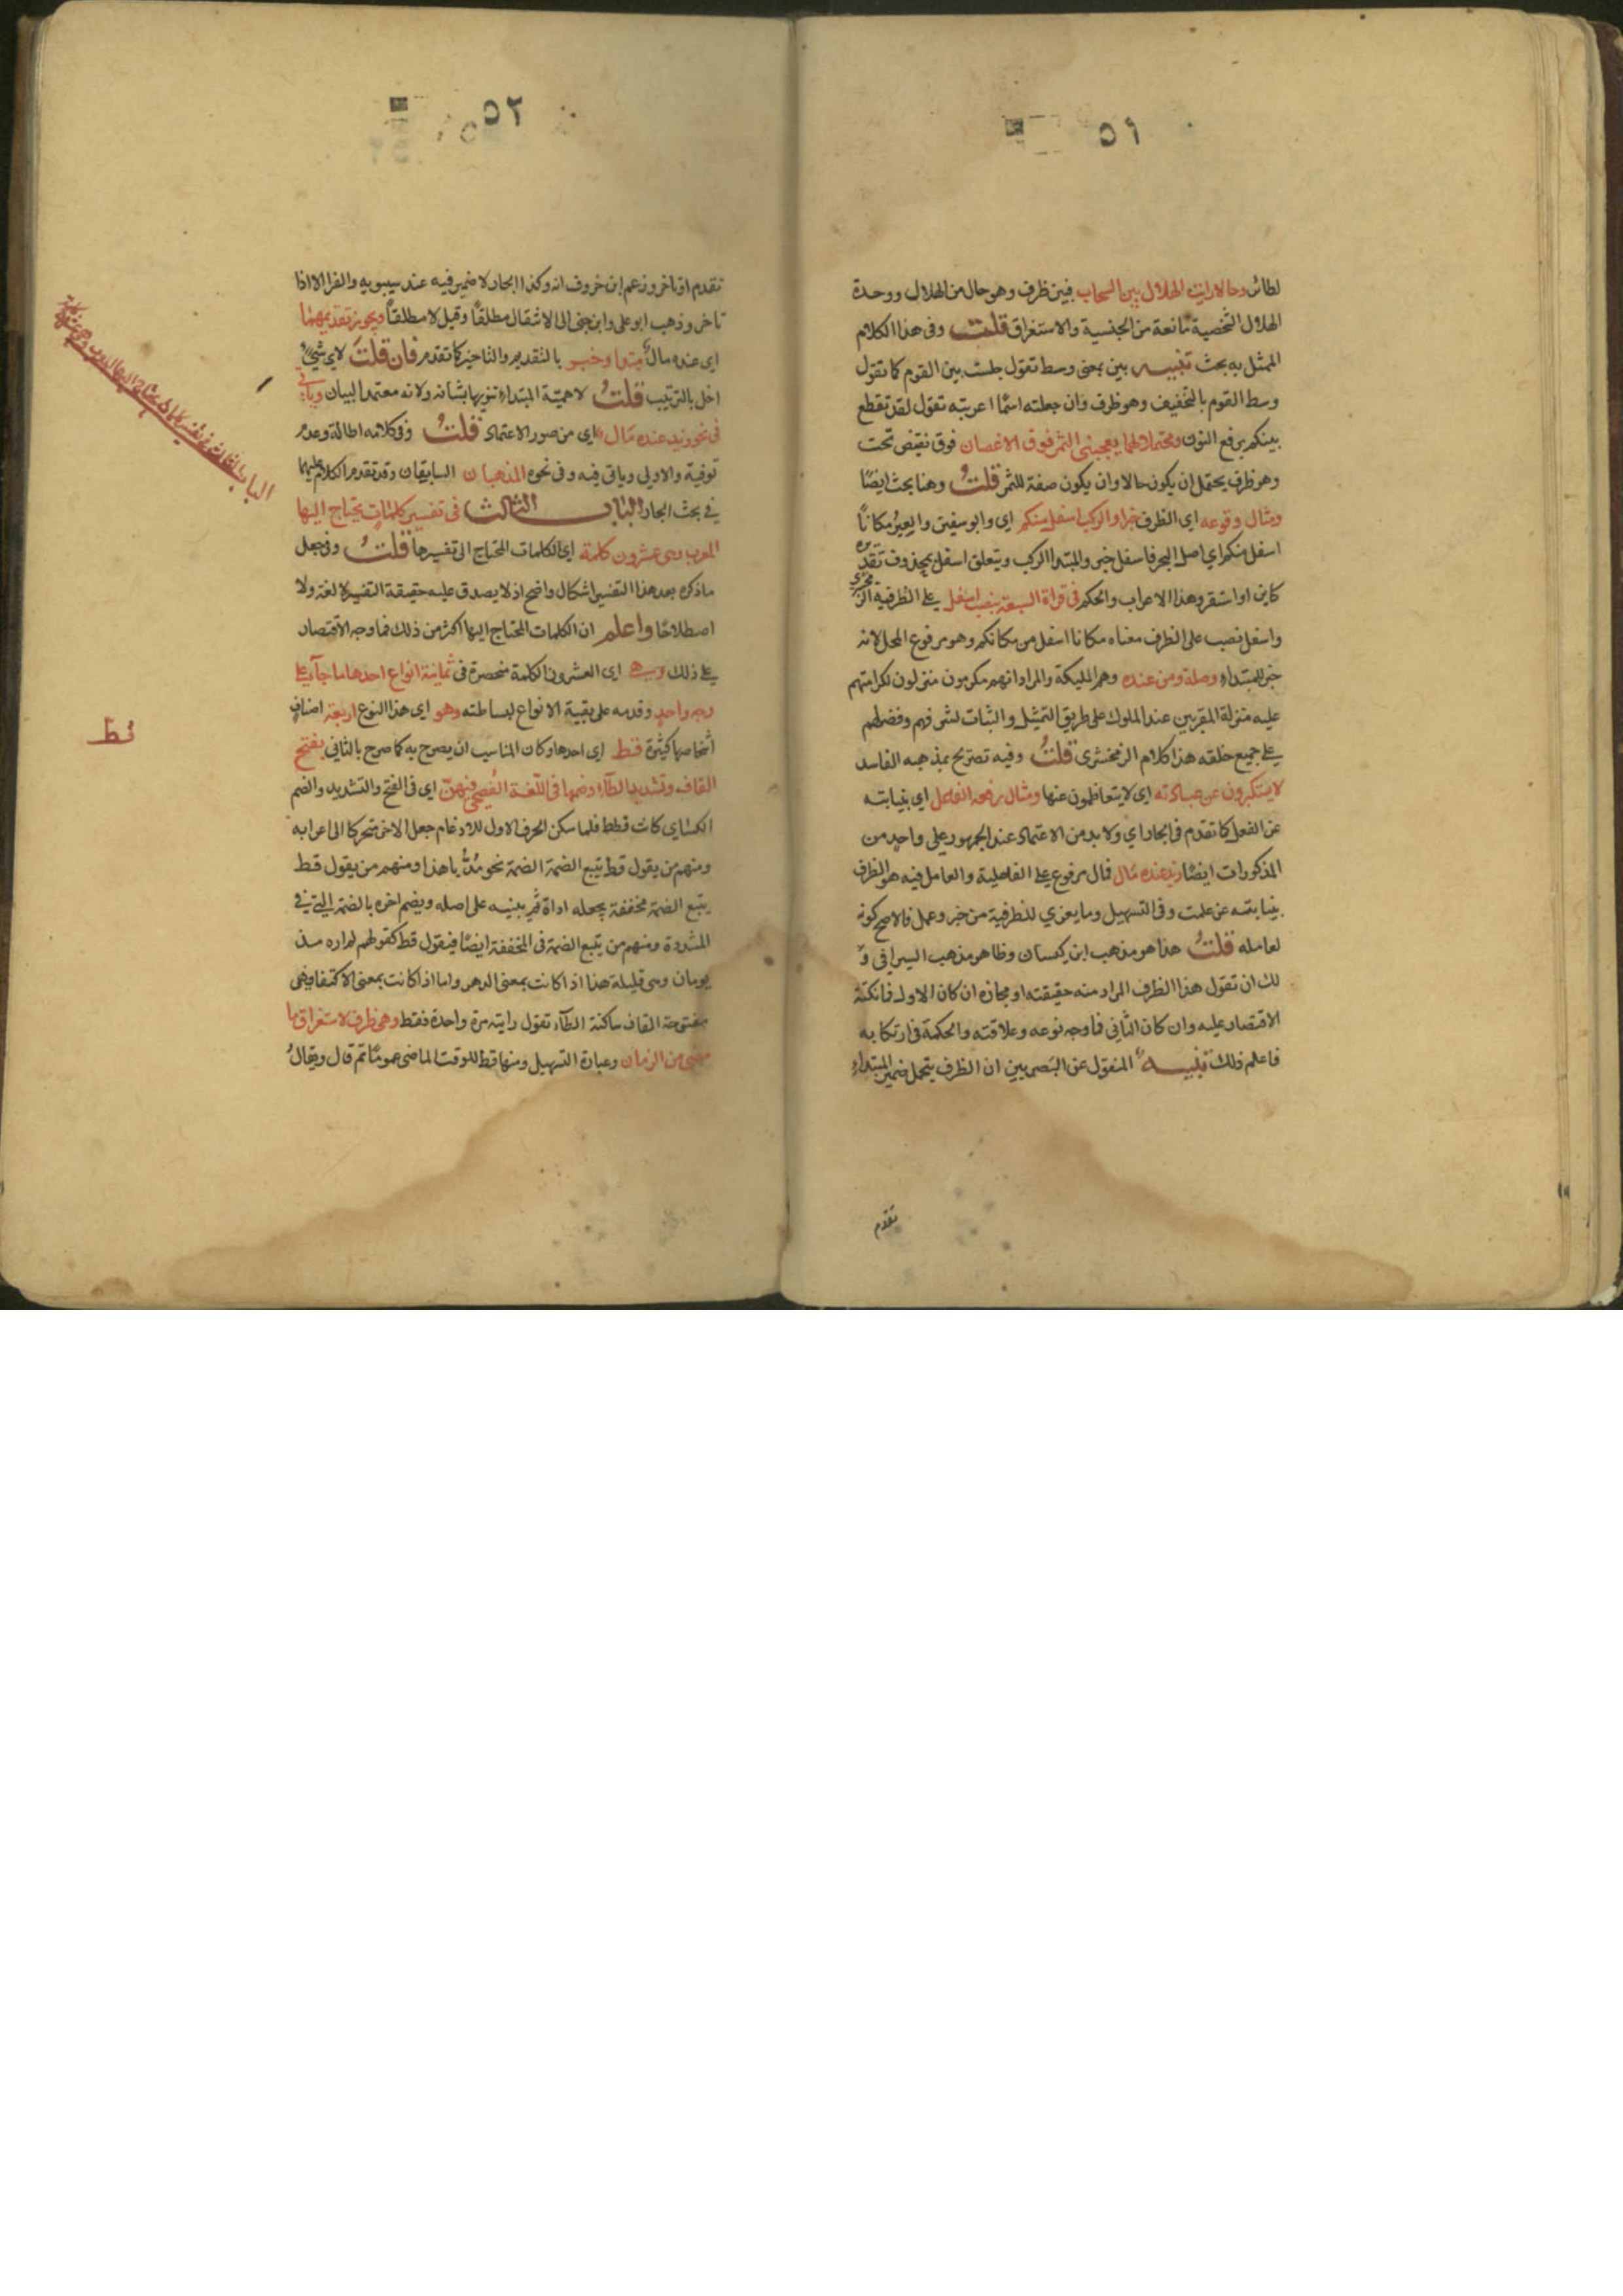 ٥١
لطائر وحالا رايت الهلال بين السحاب فبين ظرف وهو حال من الهلال ووحدة
الهلال الشخصية مانعة من الجنسية والاستغراق قلت وفى هذا الكلام
الممثل به بحث تنبيه بين بمعنى وسط تقول جلست بين القوم كما تقول
وسط القوم بالتخفيف وهو ظرف وان جعلته اسمًا اعربته تقول لقد تقطع
بينكم برفع النون ومحتملا لهما يعجبنى الثمر فوق الاغصان فوق نقيض تحت
وهو ظرف يحتمل ان يكون حالا وان يكون صفة للثمر قلتُ وهنا بحث ايضًا
ومثال وقوعه اى الظرف خبرا والركب اسفل منكم اى وابو سفين والعيرُ مكانًا
اسفل منكم اي اصل البحر فاسفل خبر والمبتدا الركب ويتعلق اسفل بمحذوف تقديره
كاين او استقر وهذا الاعراب والحكم فى قراة السبعة بنصب اسفل على الظرفية الزمخشرى
واسفل نصب على الظرف معناه مكانا اسفل من مكانكم وهو مرفوع المحل لانه
خبر للمبتداء وصلة ومن عنده وهم المليكة والمراد انهم مكرمون منزلون لكرامتهم
عليه منزلة المقربين عند الملوك على طريق التمثيل والثبات لشرفهم وفضلهم
على جميع خلقه هذا كلام الزمخشرى قلتُ وفيه تصريح بمذهبه الفاسد
لا يستكبرون عن عبادته اى لا يتعاظمون عنها ومثال رفعه الفاعل اي بنيابته
عن الفعل كما تقدم فى الجار اي ولا بد من الاعتماد عند الجمهور على واحد من
المذكورات ايضًا زيد عنده مال فمال مرفوع على الفاعلية والعامل فيه هو الظرف
بنيابته عن علمت وفى التسهيل وما يعزي للظرفية من خبر وعمل فالاصح كونه
لعامله قلتُ هذا هو مذهب ابن كيسان وظاهر مذهب السيرافى و
لك ان تقول هذا الظرف المراد منه حقيقته او مجازه ان كان الاول فما نكتة
الاقتصار عليه وان كان الثاني فما وجه نوعه وعلاقته والحكمة فى ارتكابه
فاعلم ذلك تنبيه المنقول عن البصريين ان الظرف يتحمل ضمير المبتداء
تقدم
٥٢
تقدم او تاخر وزعم ابن خروف انه وكذا الجار لا ضمير فيه عند سيبويه والفرا الا اذا
تاخر وذهب ابو على وابن جنى الى الاشقال مطلقاً وقيل لا مطلقاً ويجوز تقديمهما
اى عنده مال مبتدا وخبر بالتقديم والتاخير كما تقدم فان قلتَ لاى شيء
اخل بالترتيب قلتُ لاهميّة المبتداء تنويها بشانه ولانه معتمد البيان وياتى
فى نحو زيد عنده مال اى من صور الاعتماد قلتُ وفى كلامه اطالة وعدم
توفية والاولى وياتى فيه وفى نحوه المذهبان السابقان وقد تقدم الكلام عليهما
فى بحث الجار الباب الثالث فى تفسير كلمات يحتاج اليها
المعرب وهى عشرون كلمة اي الكلمات المحتاج الى تفسيرها قلتُ وفى جعل
ما ذكره بعد هذا التفسير اشكال واضح اذ لا يصدق عليه حقيقة التفسير لا لغة ولا
اصطلاحًا واعلم ان الكلمات المحتاج اليها اكثر من ذلك فما وجه الاقتصاد
على ذلك وهى اى العشرون الكلمة منحصرة فى ثمانية انواع احدها ما جآء على
وجه واحد وقدمه على بقية الانواع لبساطته وهو اى هذا النوع اربعة اصناف
اشخاصها كثيرة قط اى احدها وكان المناسب ان يصرح به كما صرح بالثاني بفتح
القاف وتشديد الطآء وضمها فى اللّغة الفصحى فيهنّ اى فى الفتح والتشديد والضم
الكساي كانت قطط فلما سكن الحرف الاول للادغام جعل الاخر متحركا الى اعرابه
ومنهم من يقول قط يتبع الضمة الضمة نحو مُدُّ يا هذا ومنهم من يقول قط
يتبع الضمة مخففة يجعله اداة ثم يبنيه على اصله ويضم اخره بالضمة التى فى
المشددة ومنهم من يتبع الضمة فى المخففة ايضًا فيقول قط كقولهم لم اره مذ
يومان وهى قليلة هذا اذا كانت بمعنى الدهر واما اذا كانت بمعنى الاكتفا وهى
مفتوحة القاف ساكنة الطآء تقول رايته مرة واحدة فقط وهى ظرف لاستغراق ما
مضى من الزمان وعبارة التسهيل ومنها قط للوقت الماضى عمومًا ثم قال ويقالُ
قط